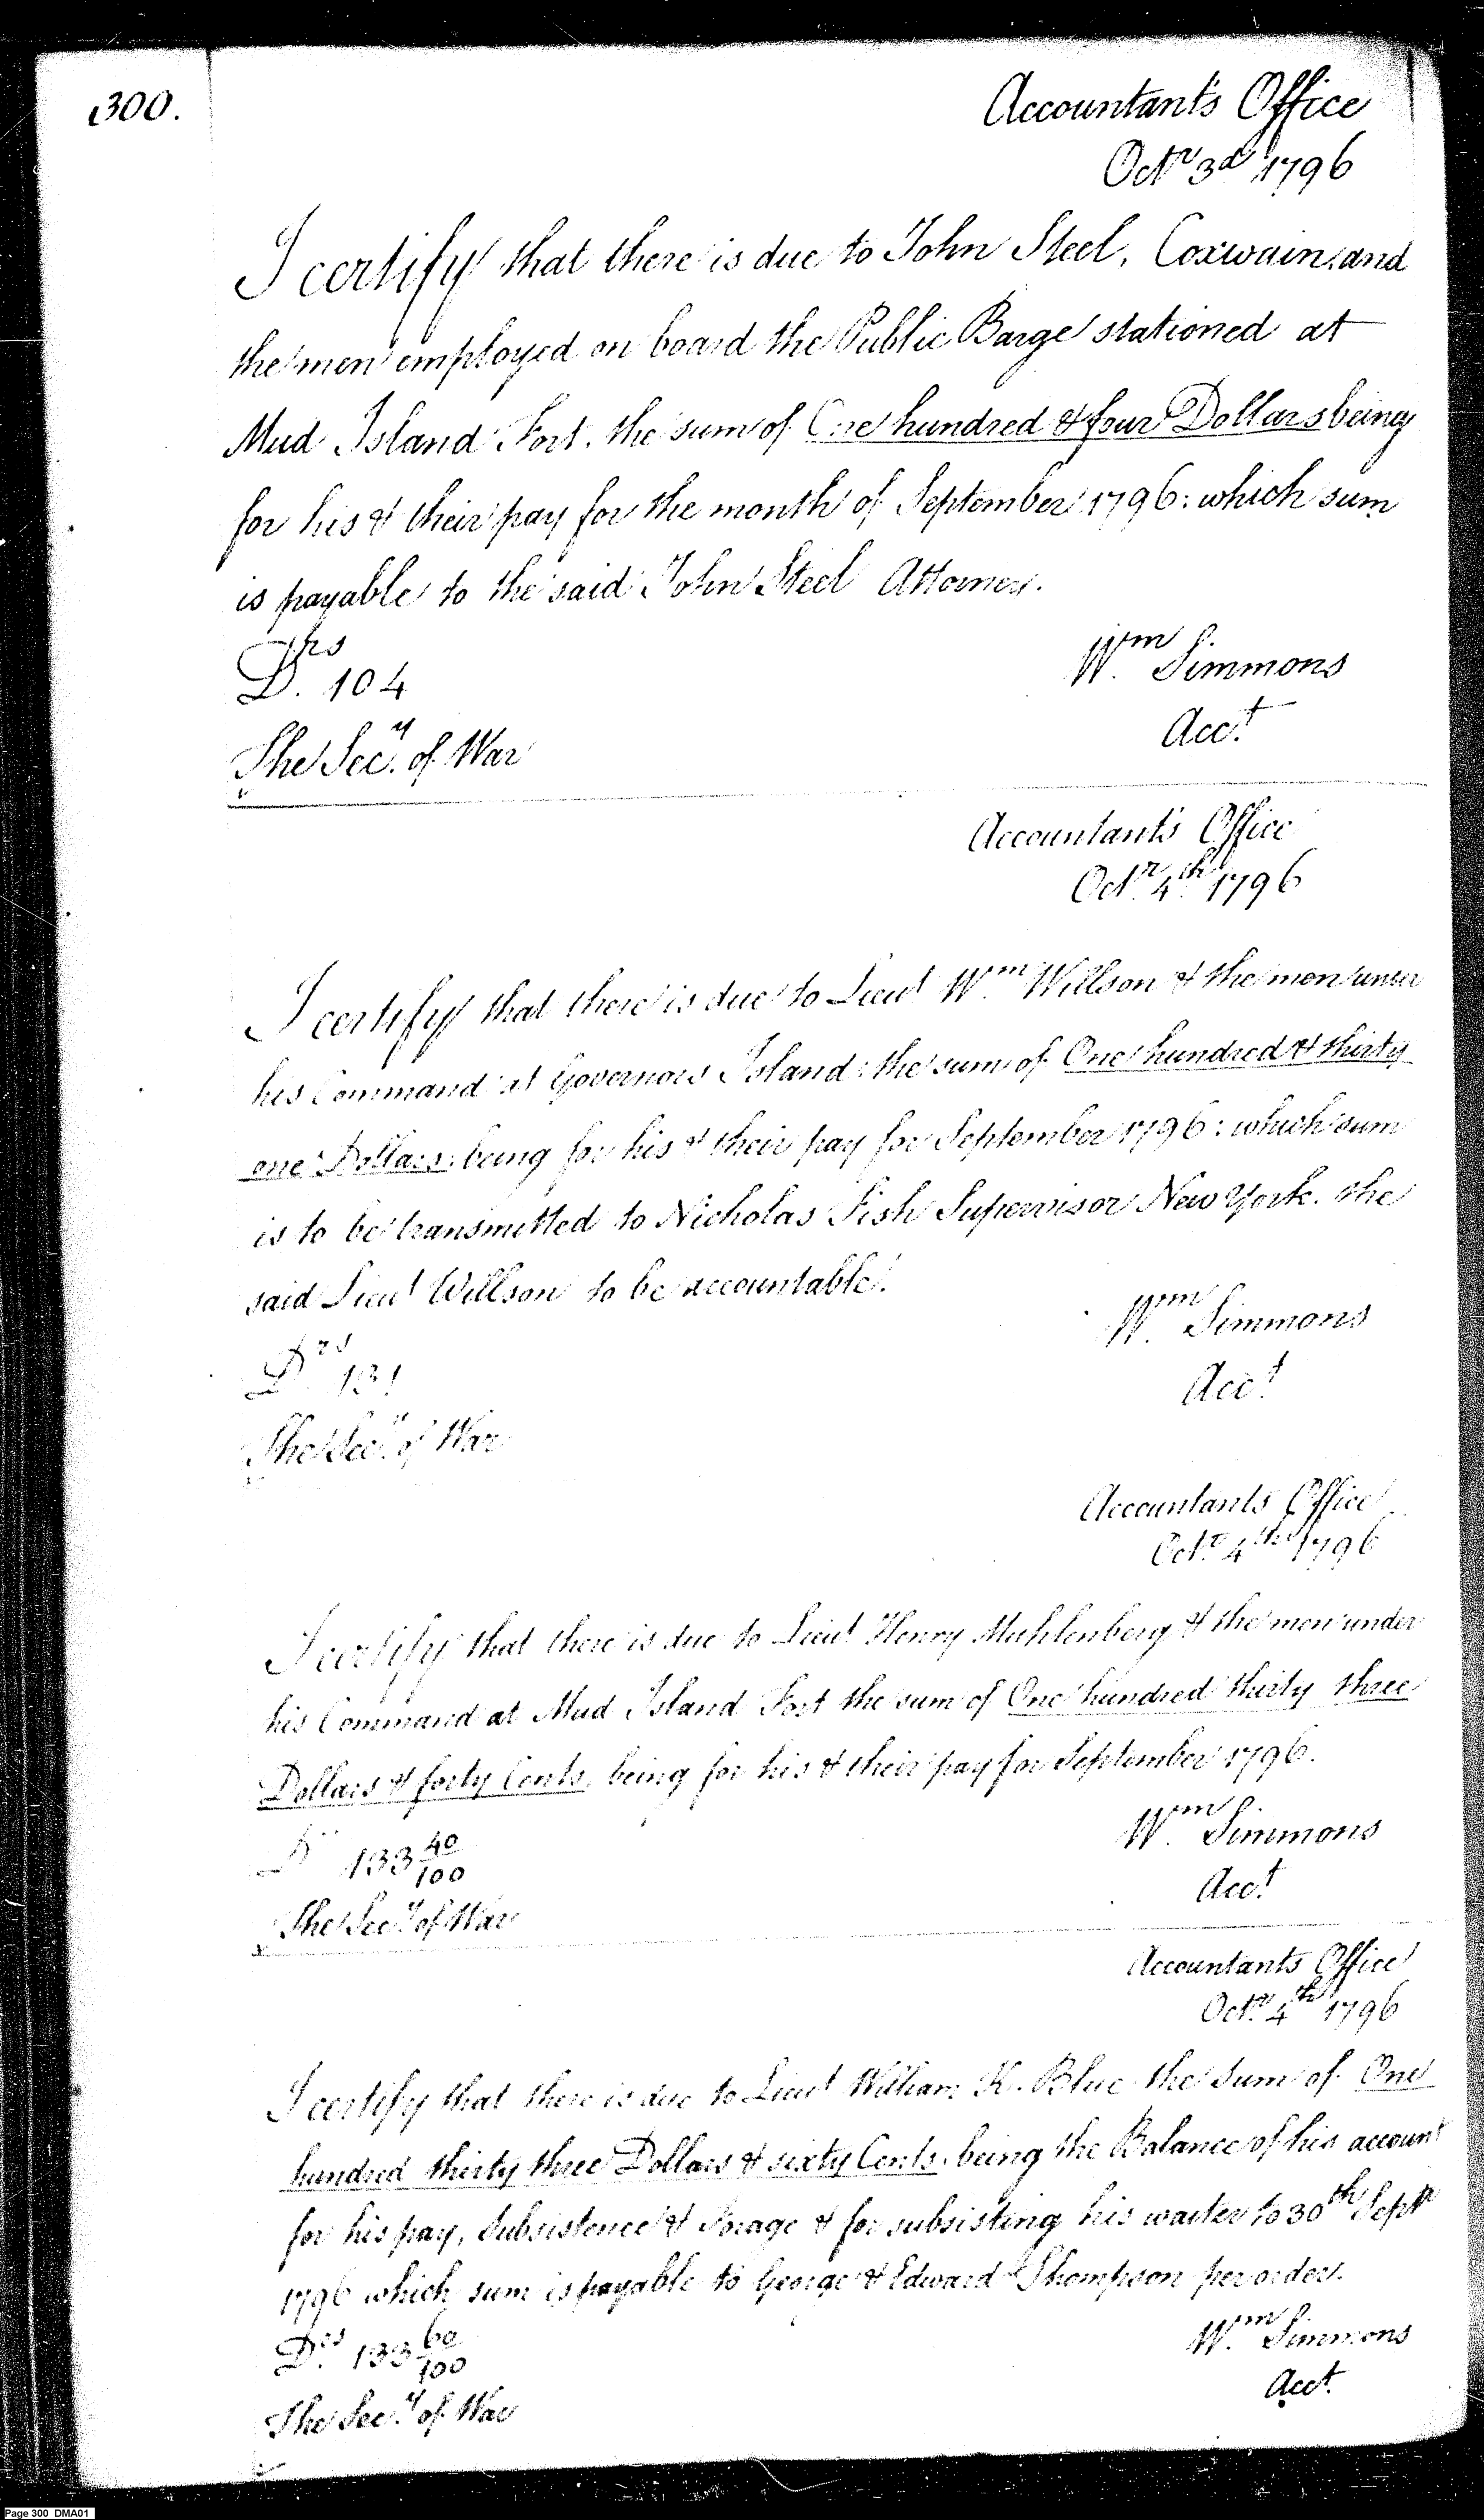 300.
Accountants Office
Octr 3d 1796
I certify that there is due to John Steel, Coxwain, and
the men employed on board the Public Barge stationed at
Mud Island Fort, the sum of One hundred & four Dollars being
for his & their pay for the month of September 1796: which sum
is payable to the said John Steel Attorney.
Drs
D. 104
Wm Simmons
Acct
The Secy of War
Accountant's Office
Octr 4th 1796
I certify that there is due to Lieut Wm Willson & the men under
his Command at Governors Island: the sum of One hundred & thirty
one Dollars: being for his & their pay for September 1796: which sum
is to be transmitted to Nicholas Fish Supervisor New York. the
said Lieut Willson to be accountable.
Drs 131
Wm Simmons
Acct
The Secy of War
Accountants Office
Octr 4th 1796
I certify that there is due to Lieut Henry Muhlenberg & the men under
his Command at Mud Island Fort the sum of One hundred thirty three
Dollars & forty Cents, being for his & their pay for September 1796.
D 133 40/100
Wm Simmons
Acct
The Secy of War
Accountants Office
Octr 4th 1796
I certify that there is due to Lieut William K. Blue the sum of One
hundred thirty three Dollars & sixty Cents, being the Balance of his account
for his pay, Subsistence & Forage & for subsisting his waiter to 30th Septr
1796 which sum is payable to George & Edward Thompson per order.
Drs 133 60/100
Wm Simmons
Acct.
The Secy of War
Page 300 DMA01